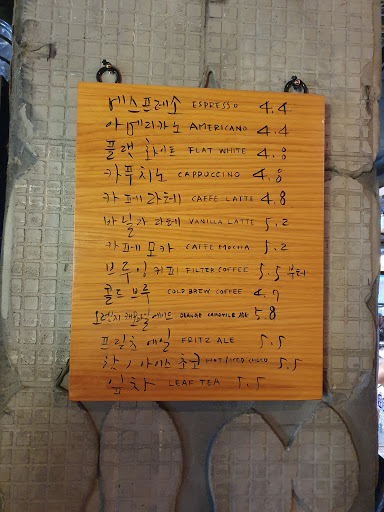 에스프레소 ESPRESSO 4.4
아메리카노 AMERICANO 4.4
플랫 화이트 FLAT WHITE 4.8
카푸치노 CAPPUCCINO 4.8
카페라떼 CAFFE LATTE 4.8
바닐라 라떼 VANILLA LATTE 5.2
카페 모카 CAFFE MOCHA 5.2
브루잉 커피 FILTER COFFEE 5.5 부터
콜드 브루 COLD BREW COFFEE 4.9
오렌지 캐모마일 에이드 ORANGE CAMOMILE ADE 5.8
프릳츠 에일 FRITZ ALE 5.5
핫 / 아이스 초코 HOT / ICED CHOCO 5.5
잎차 LEAF TEA 5.5